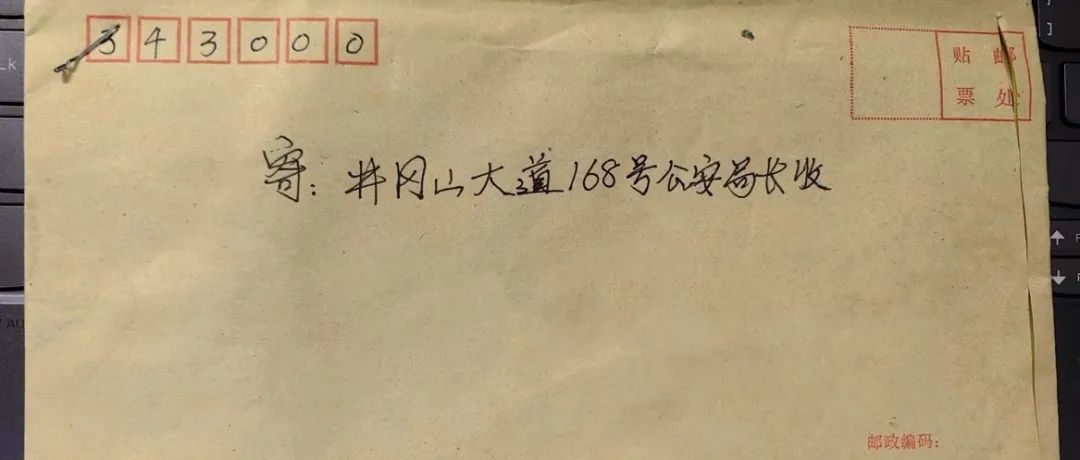 343000
贴 邮
票 处
寄：井冈山大道168号公安局长收
邮政编码：